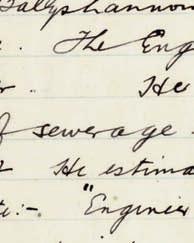 Ballyshannon
. The Eng
. He
f sewerage
He estima
te:- "Enginee